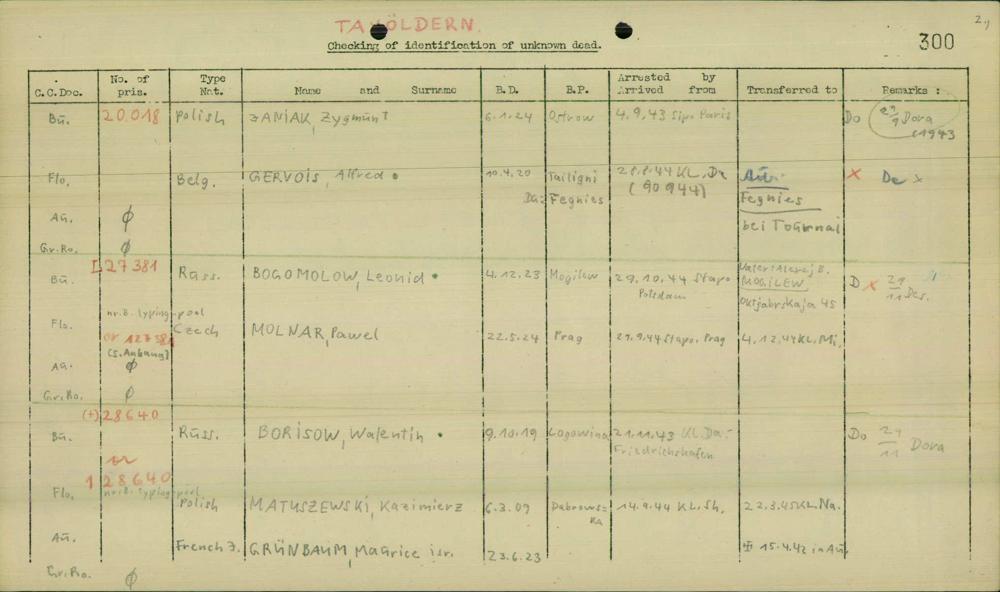 TAXÖLDERN.
2.)
Checking of identification of unknown dead.
300
C.C.Doc. No. of pris. Type Nat. Name and Surname B.D. B.P. Arrested by Arrived from Transferred to Remarks :
Bu. 20.018 Polish JANIAK, Zygmunt 6.1.24 Ostrow 4.9.43 Sipo Paris Do 29/9 Dora 1943
Flo. Belg. GERVOIS, Alfred 10.4.20 Tailigni 28.8.44 KL. Da X De x
Da: Fegnies (90944) Fegnies
Au. Ø bei Tournai
Gr.Ro. Ø
Bu. [27381 Russ. BOGOMOLOW, Leonid 4.12.23 Mogilew 29.10.44 Stapo Potsdam Vater: Alexej B. MOGILEW, Oktjabrskaja 45 D X 21/11 Des.
nr. B. typing-pool
Flo. or 127381 Czech MOLNAR, Pawel 22.5.24 Prag 29.9.44 Stapo. Prag 4.12.44 KL. Mi.
(s. Anhang)
Au. Ø
Gr.Ro. Ø
(+) 28640
Bu. Russ. BORISOW, Walentin 9.10.19 Logowina 21.11.43 KL Da- Friedrichshafen Do 29/11 Dora
or
128640
Flo. nr. B. typing-pool
Polish MATUSZEWSKI, Kazimierz 6.3.09 Dabrowska 14.9.44 KL. Sh. 22.3.45 KL. Na.
Au. French J. GRÜNBAUM, Maurice isr. 23.6.23 15.4.42 in Au.
Gr.Ro. Ø